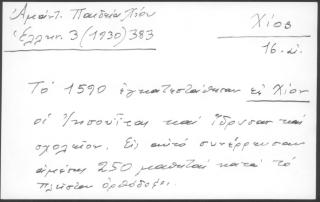 Ἀμάντ. Παιδεία Χίου
Ἑλλην. 3 (1930) 383
Χίος
16. αἰ.
Τὸ 1590 ἐγκατεστάθησαν εἰς Χίον
οἱ Ἰησουῖται καὶ ἵδρυσαν καὶ
σχολεῖον. Εἰς αὐτὸ συνέρρευσαν
ἀμέσως 250 μαθηταὶ κατὰ τὸ
πλεῖστον ὀρθόδοξοι.